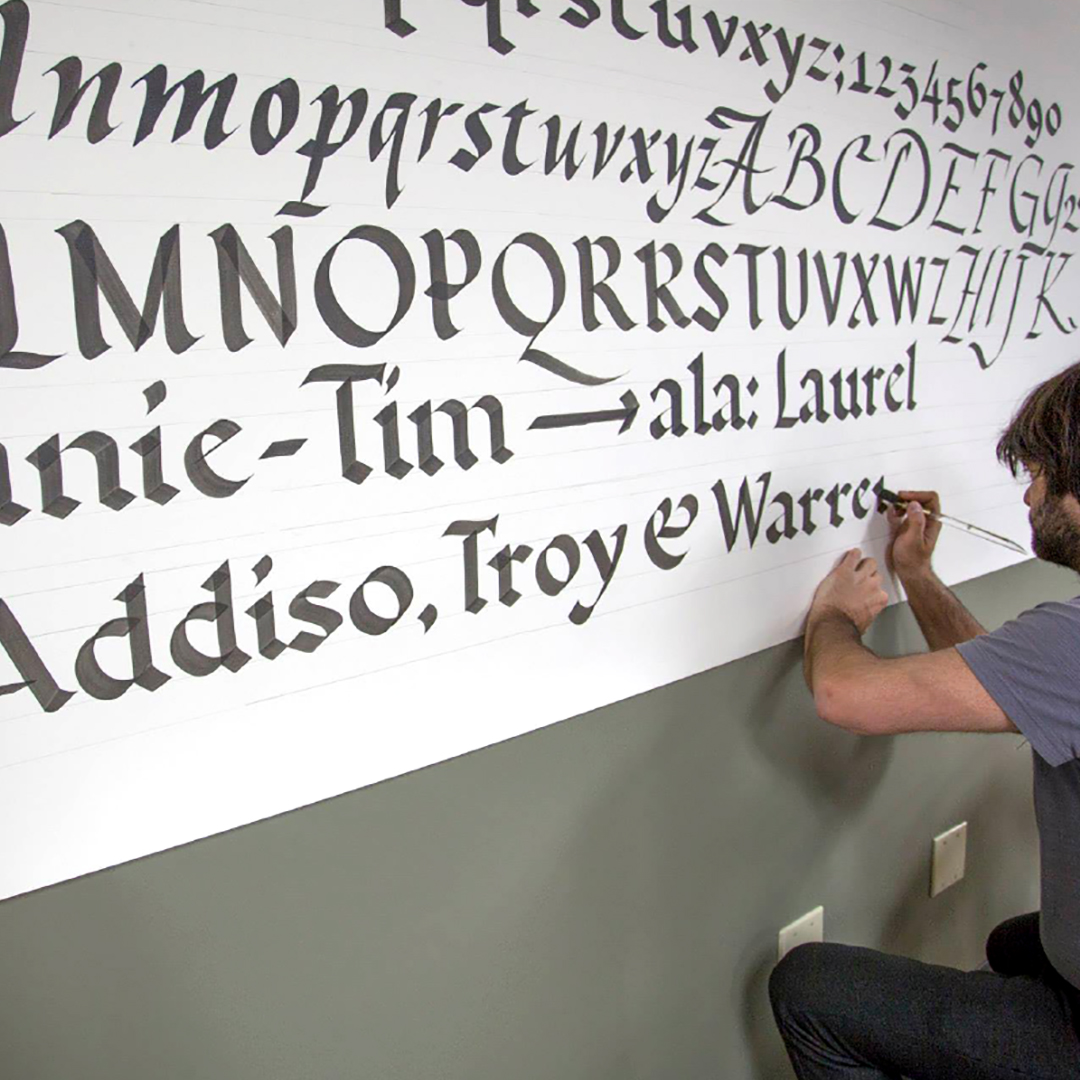 pqrstuvxyz;1234567890
lnmopqrstuvxyzABCDEFG
LMNOPQRRSTUVXWZHIJK
nnie-Tim → ala: Laurel
Addiso, Troy & Warren